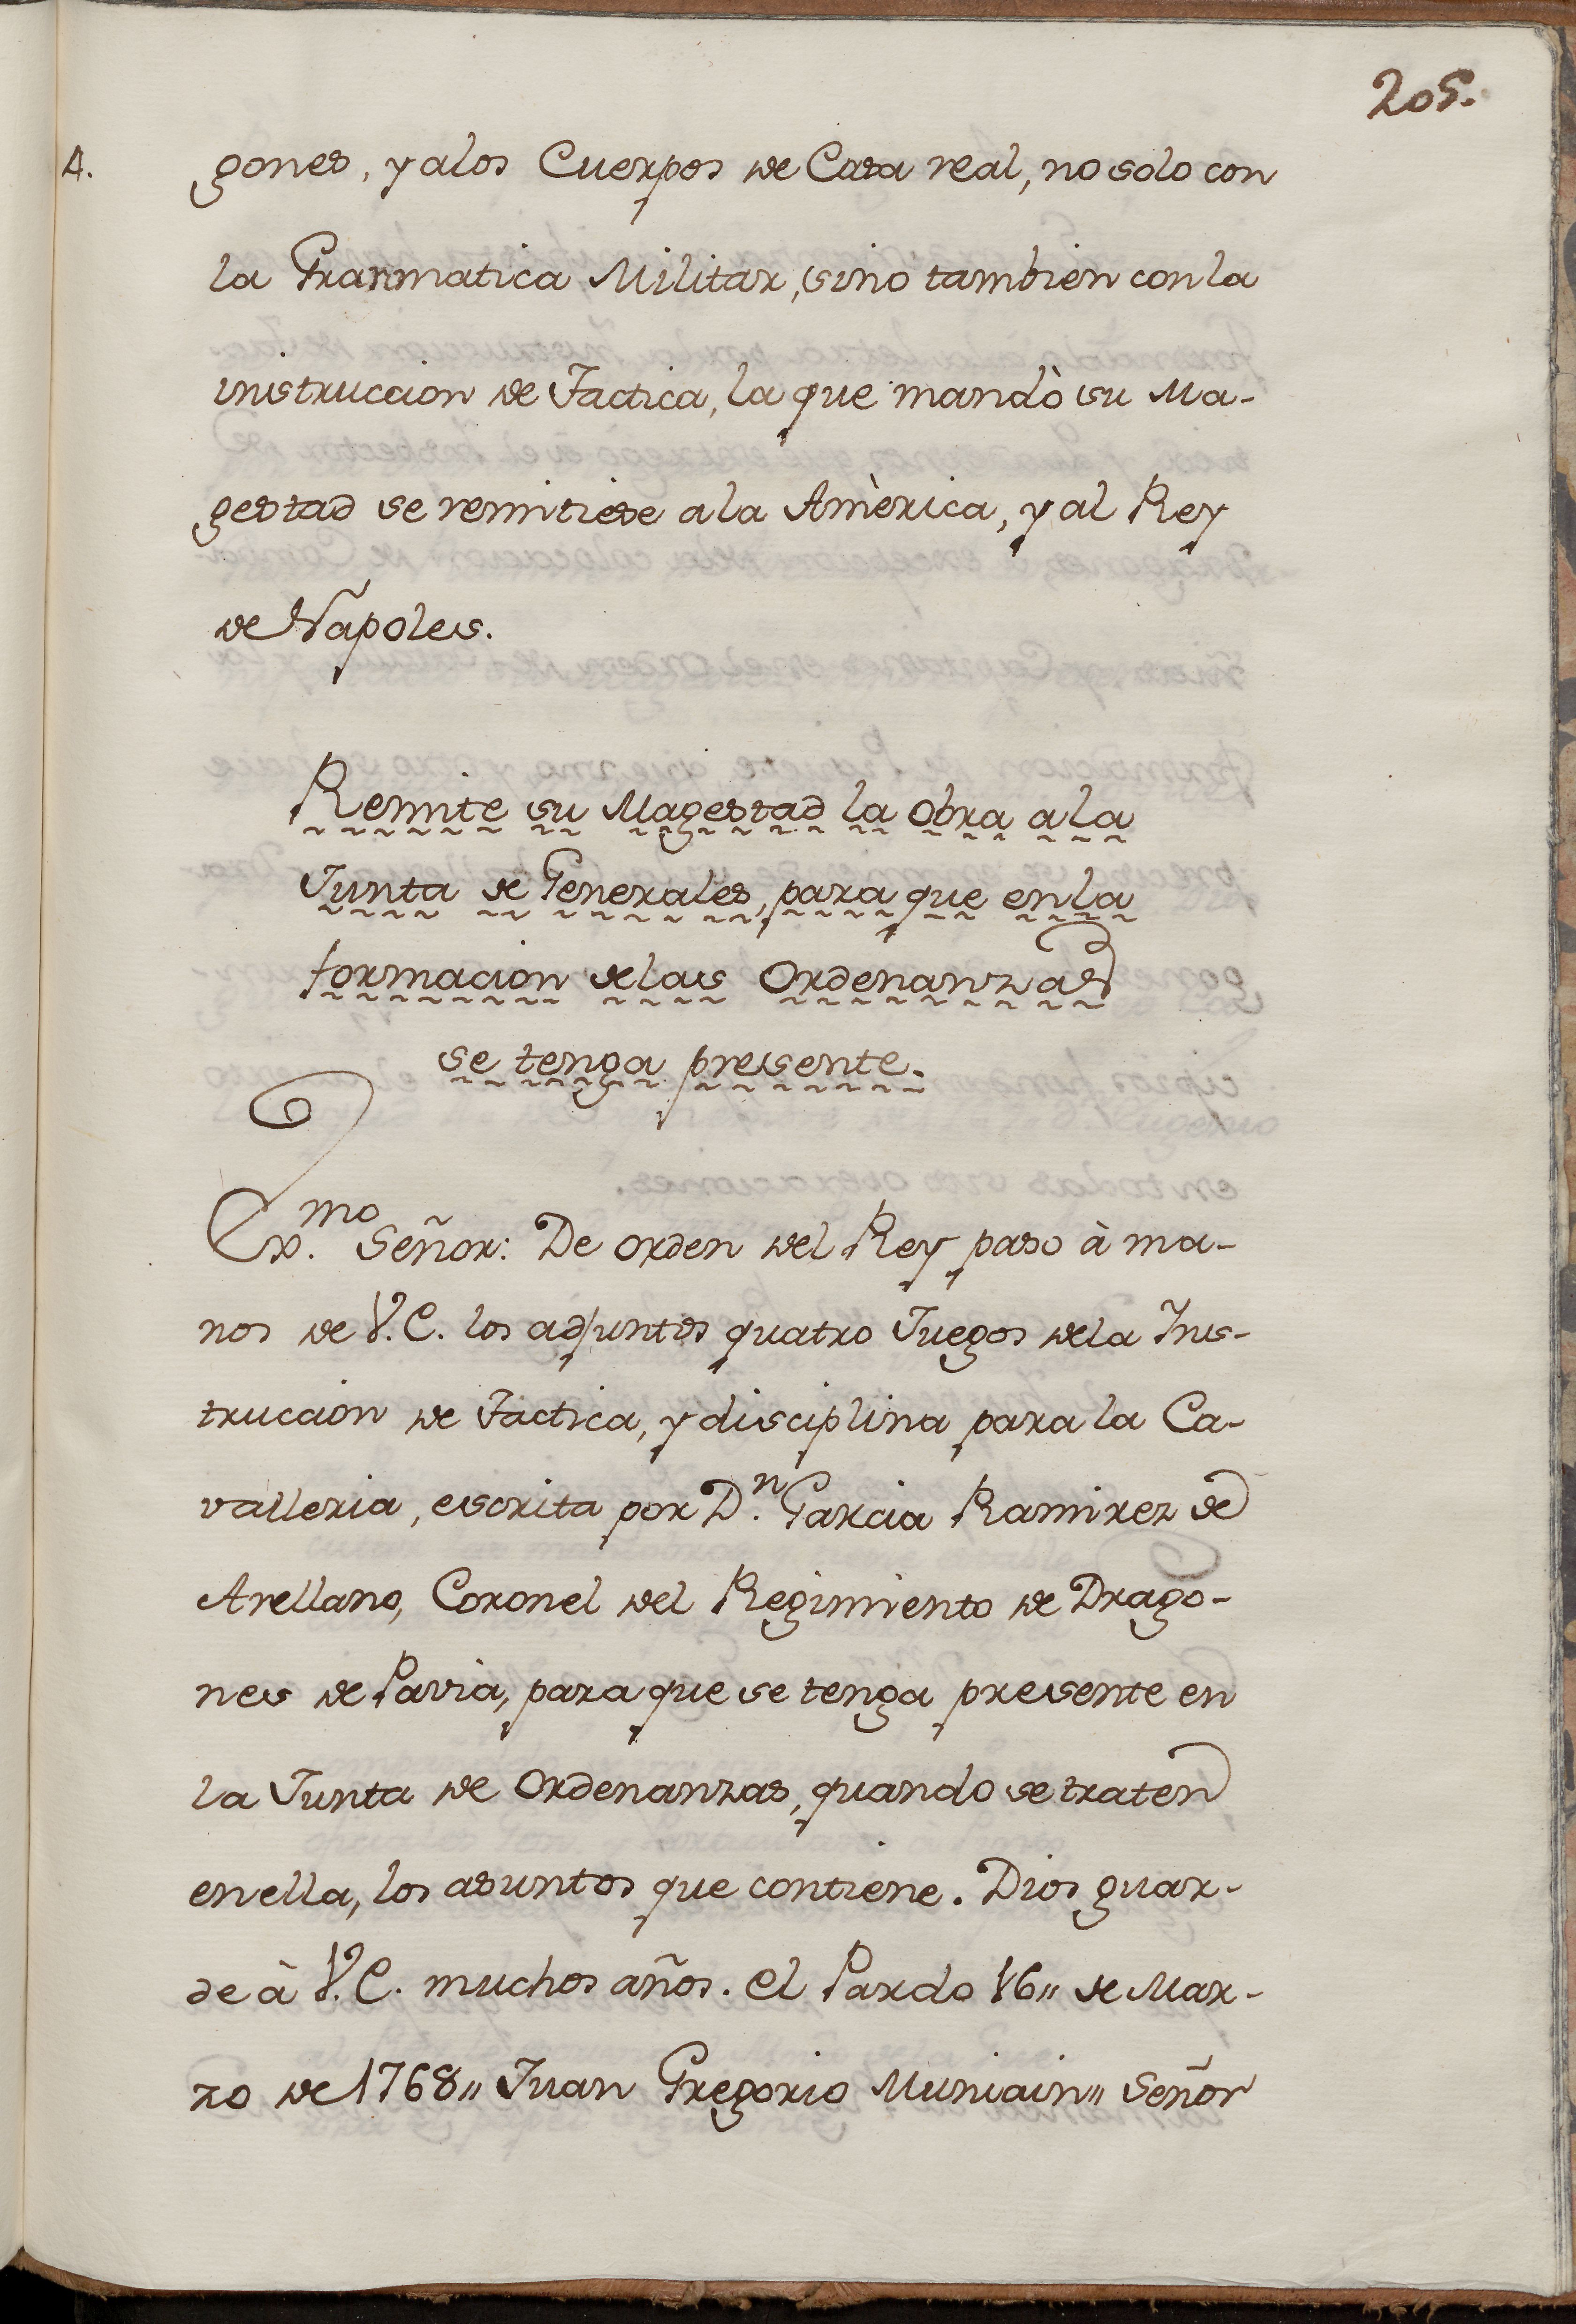 205.
4.
gones, y alos Cuerpos de Casa real, no solo con
la Grammatica Militar, sino tambien con la
instruccion de Tactica, la que mandò su Ma-
gestad se remitiese a la Amèrica, y al Rey
de Napoles.
Remite su Magestad la obra a la
Junta de Generales, para que en la
formacion de las Ordenanzas
se tenga presente.
Ex.mo Señor: De orden del Rey paso à ma-
nos de V.E. los adjuntos quatro Juegos de la Ins-
truccion de Tactica, y disciplina para la Ca-
valleria, escrita por D.n Garcia Ramirez de
Arellano, Coronel del Regimiento de Drago-
nes de Pavia, para que se tenga presente en
la Junta de Ordenanzas, quando se traten
en ella, los asuntos que contiene. Dios guar-
de à V.E. muchos años. El Pardo 16,, de Mar-
zo de 1768,, Juan Gregorio Muniain,, Señor